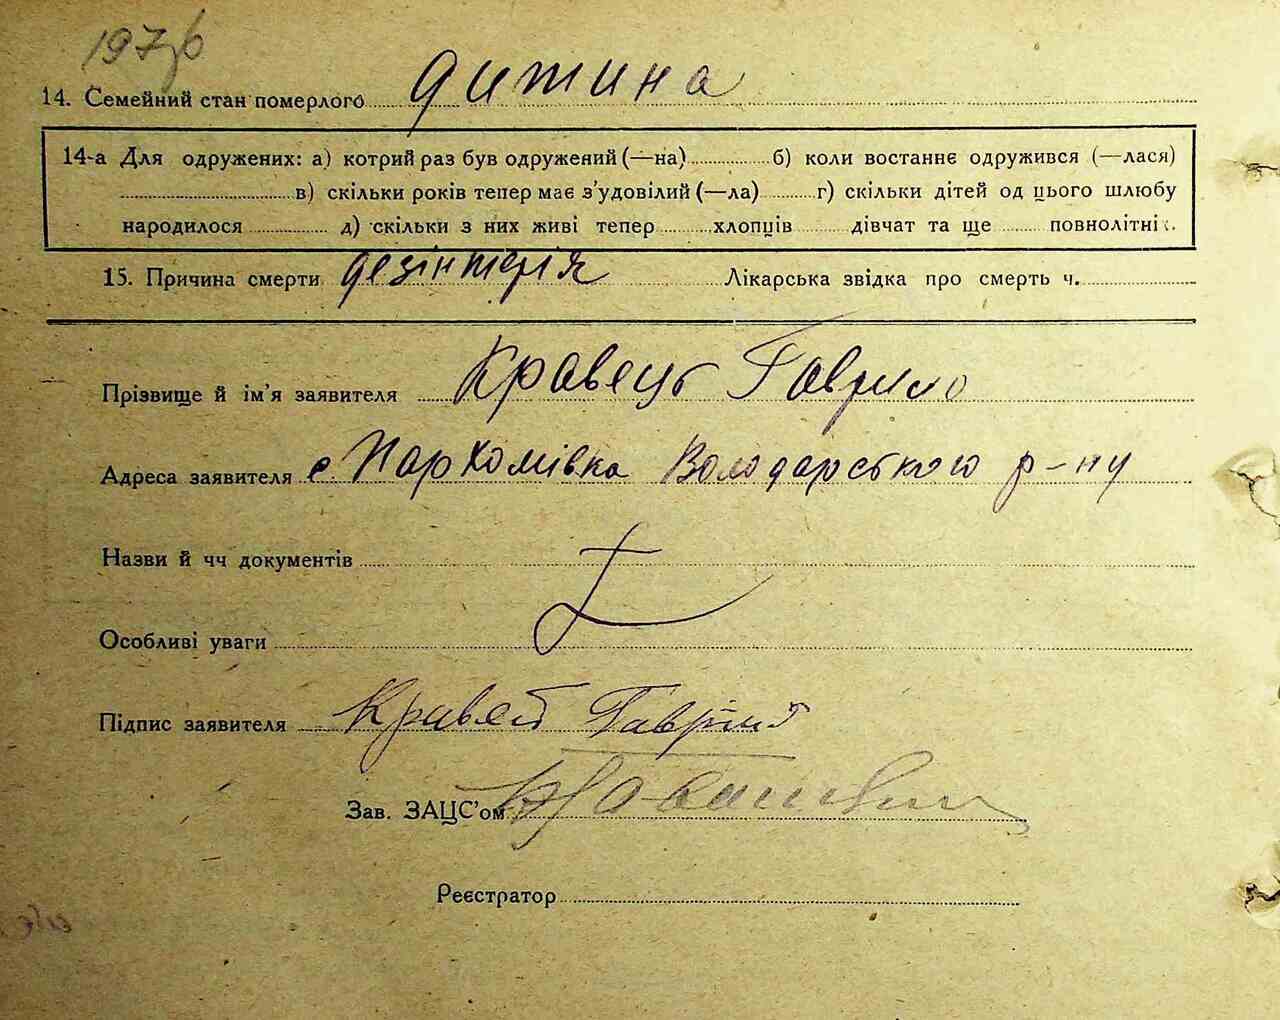 197
14. Семейний стан померлого дитина
14-а Для одружених: а) котрий раз був одружений (—на) б) коли востаннє одружився (—лася)
в) скільки років тепер має з'удовілий (—ла) г) скільки дітей од цього шлюбу
народилося д) скільки з них живі тепер хлопців дівчат та ще повнолітніх.
15. Причина смерти дезінтерія Лікарська звідка про смерть ч.
Прізвище й ім'я заявителя Кравець Гаврило
Адреса заявителя с Пархомівка Володарського р-ну
Назви й чч документів
Особливі уваги
Підпис заявителя Кравец Гаврило
Зав. ЗАЦС'ом
Реєстратор